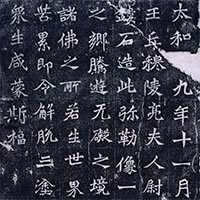 太和 九年十一月
王丘穆陵亮夫人尉
鏤石造此彌勒像一
之鄉騰遊無礙之境
諸佛之所若生世界
苦累即令解脫三塗
衆生咸蒙斯福